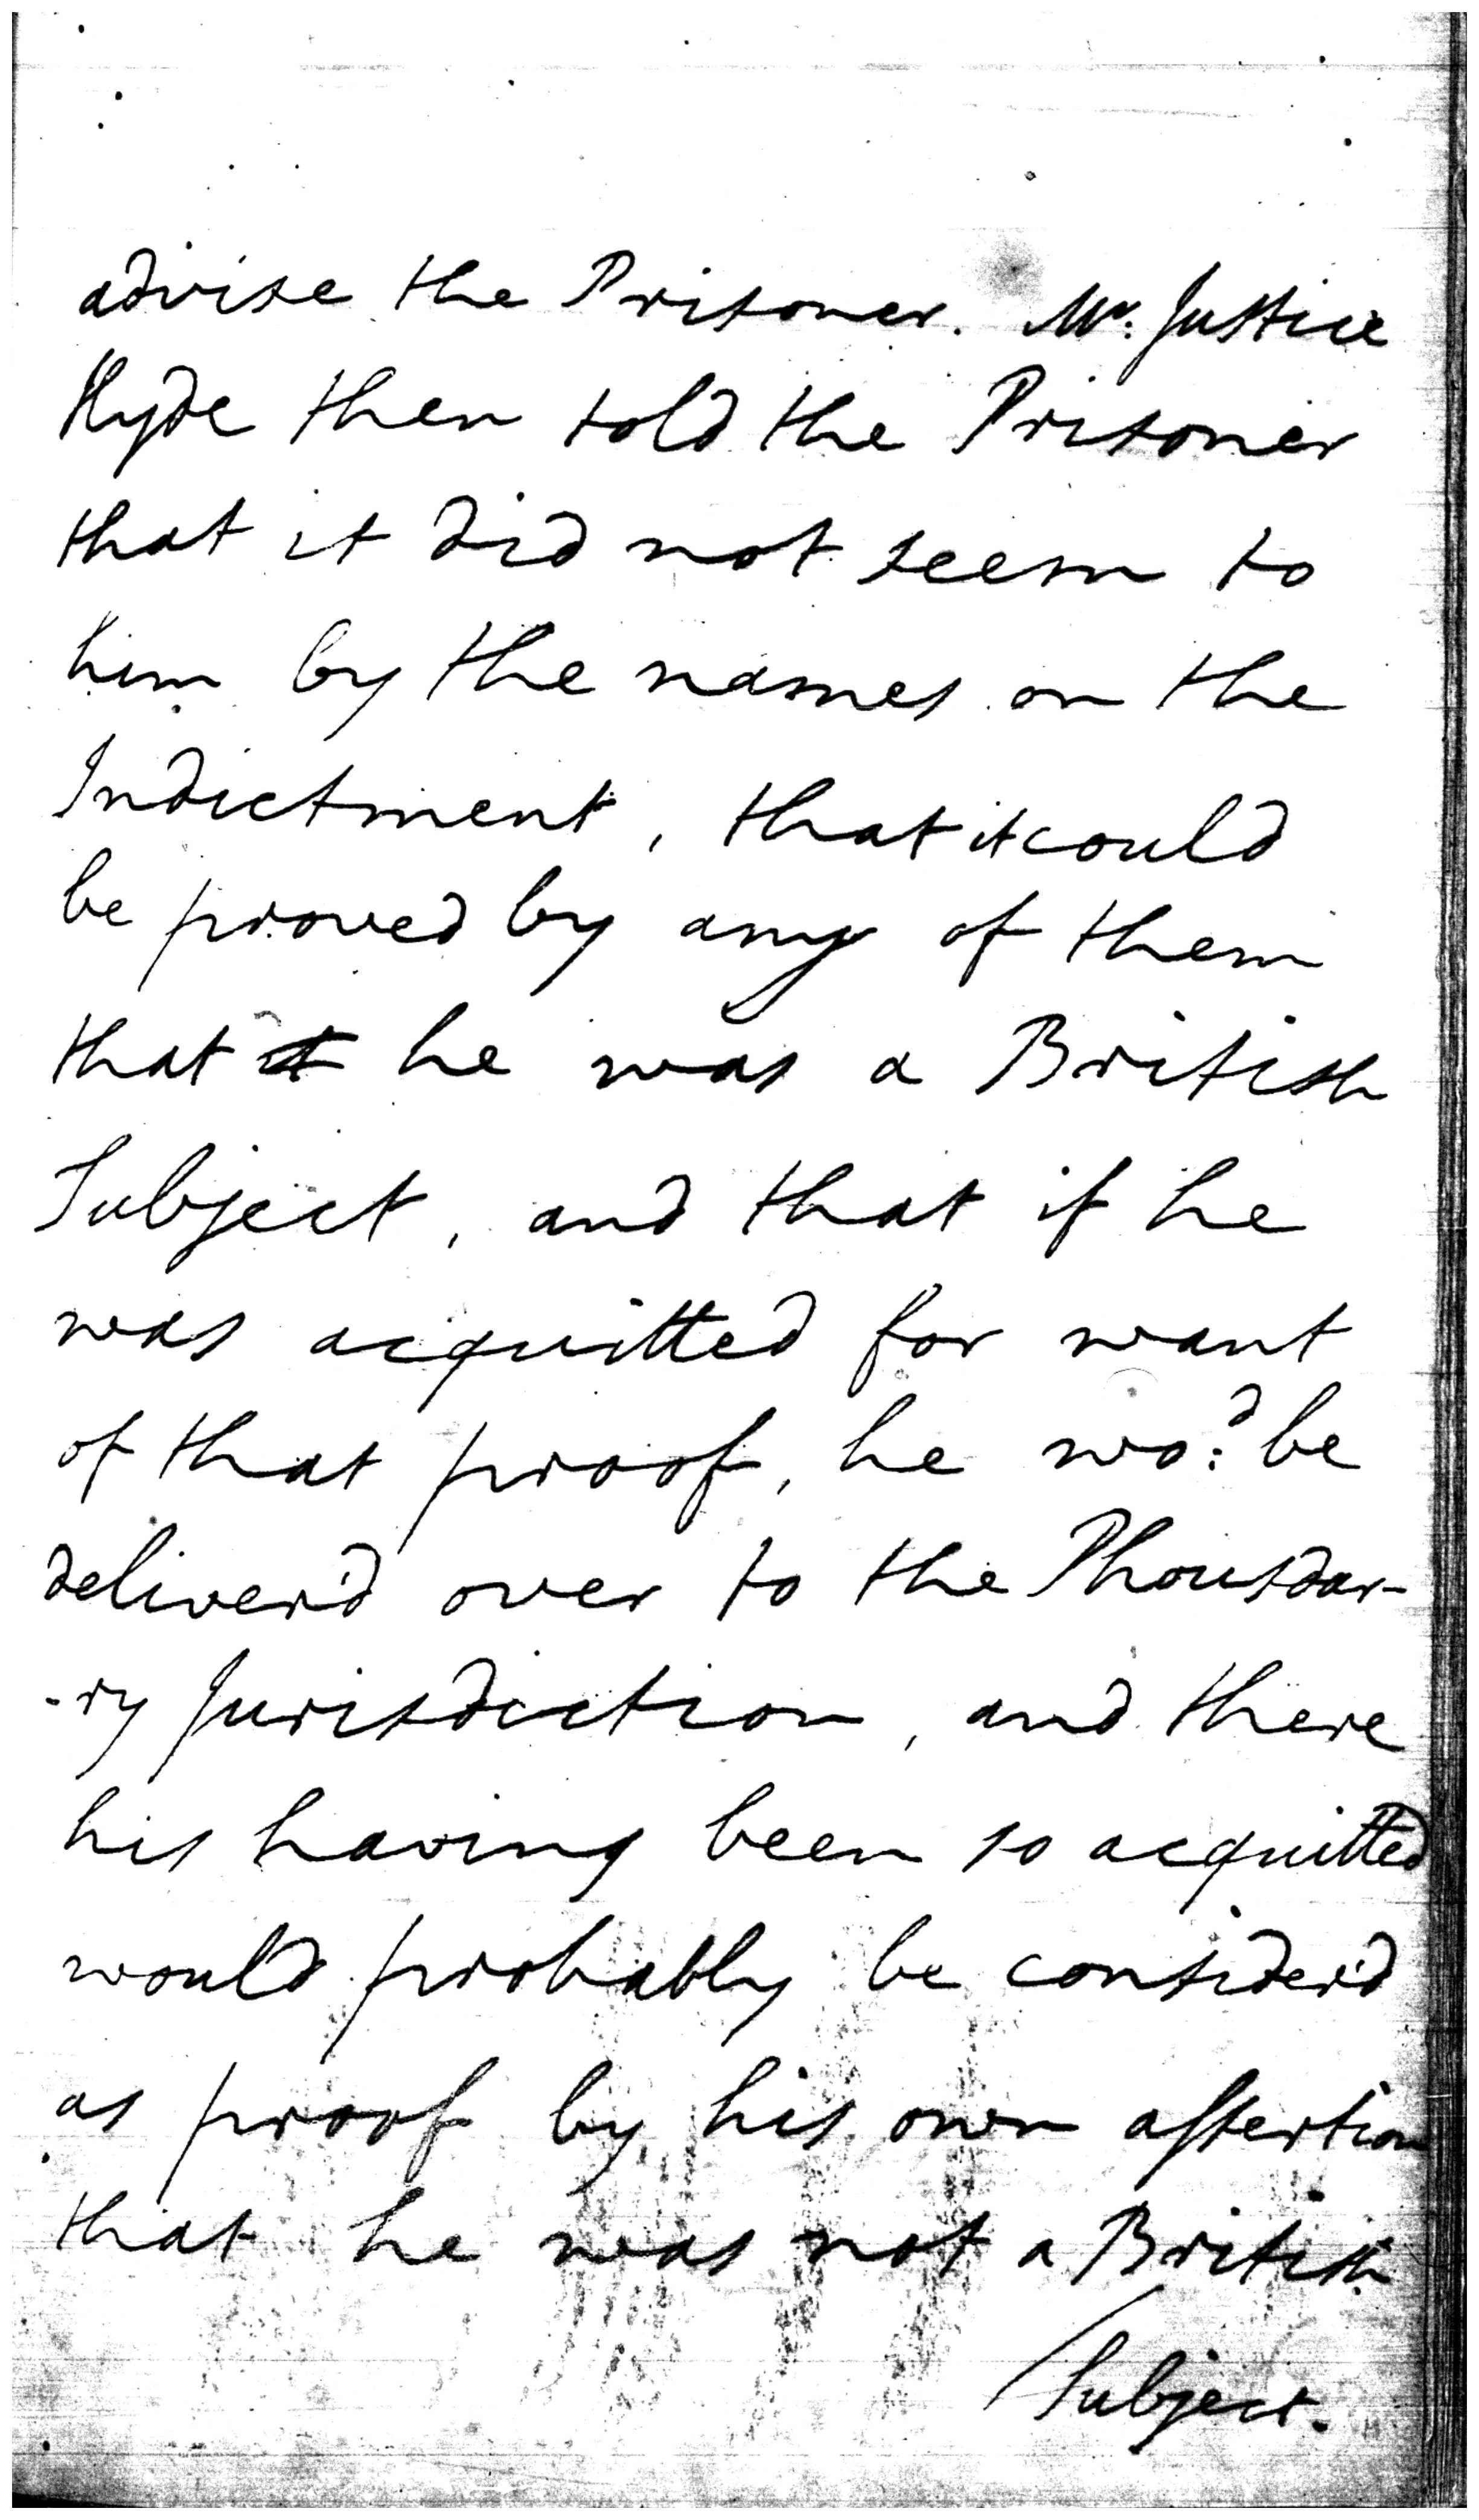 advise the Prisoner. Mr. Justice
Hyde then told the Prisoner
that it did not seem to
him by the names on the
Indictment, that it could
be proved by any of them
that it he was a British
Subject, and that if he
was acquitted for want
of that proof, he wo:d be
deliver'd over to the Phousdar-
-ry Jurisdiction, and there
his having been so acquitted
would probably be consider'd
as proof by his own assertion
that he was not a British
Subject.